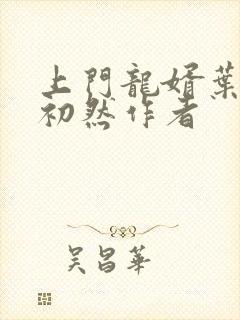 上門龍婿葉
初然作者
吴昌華